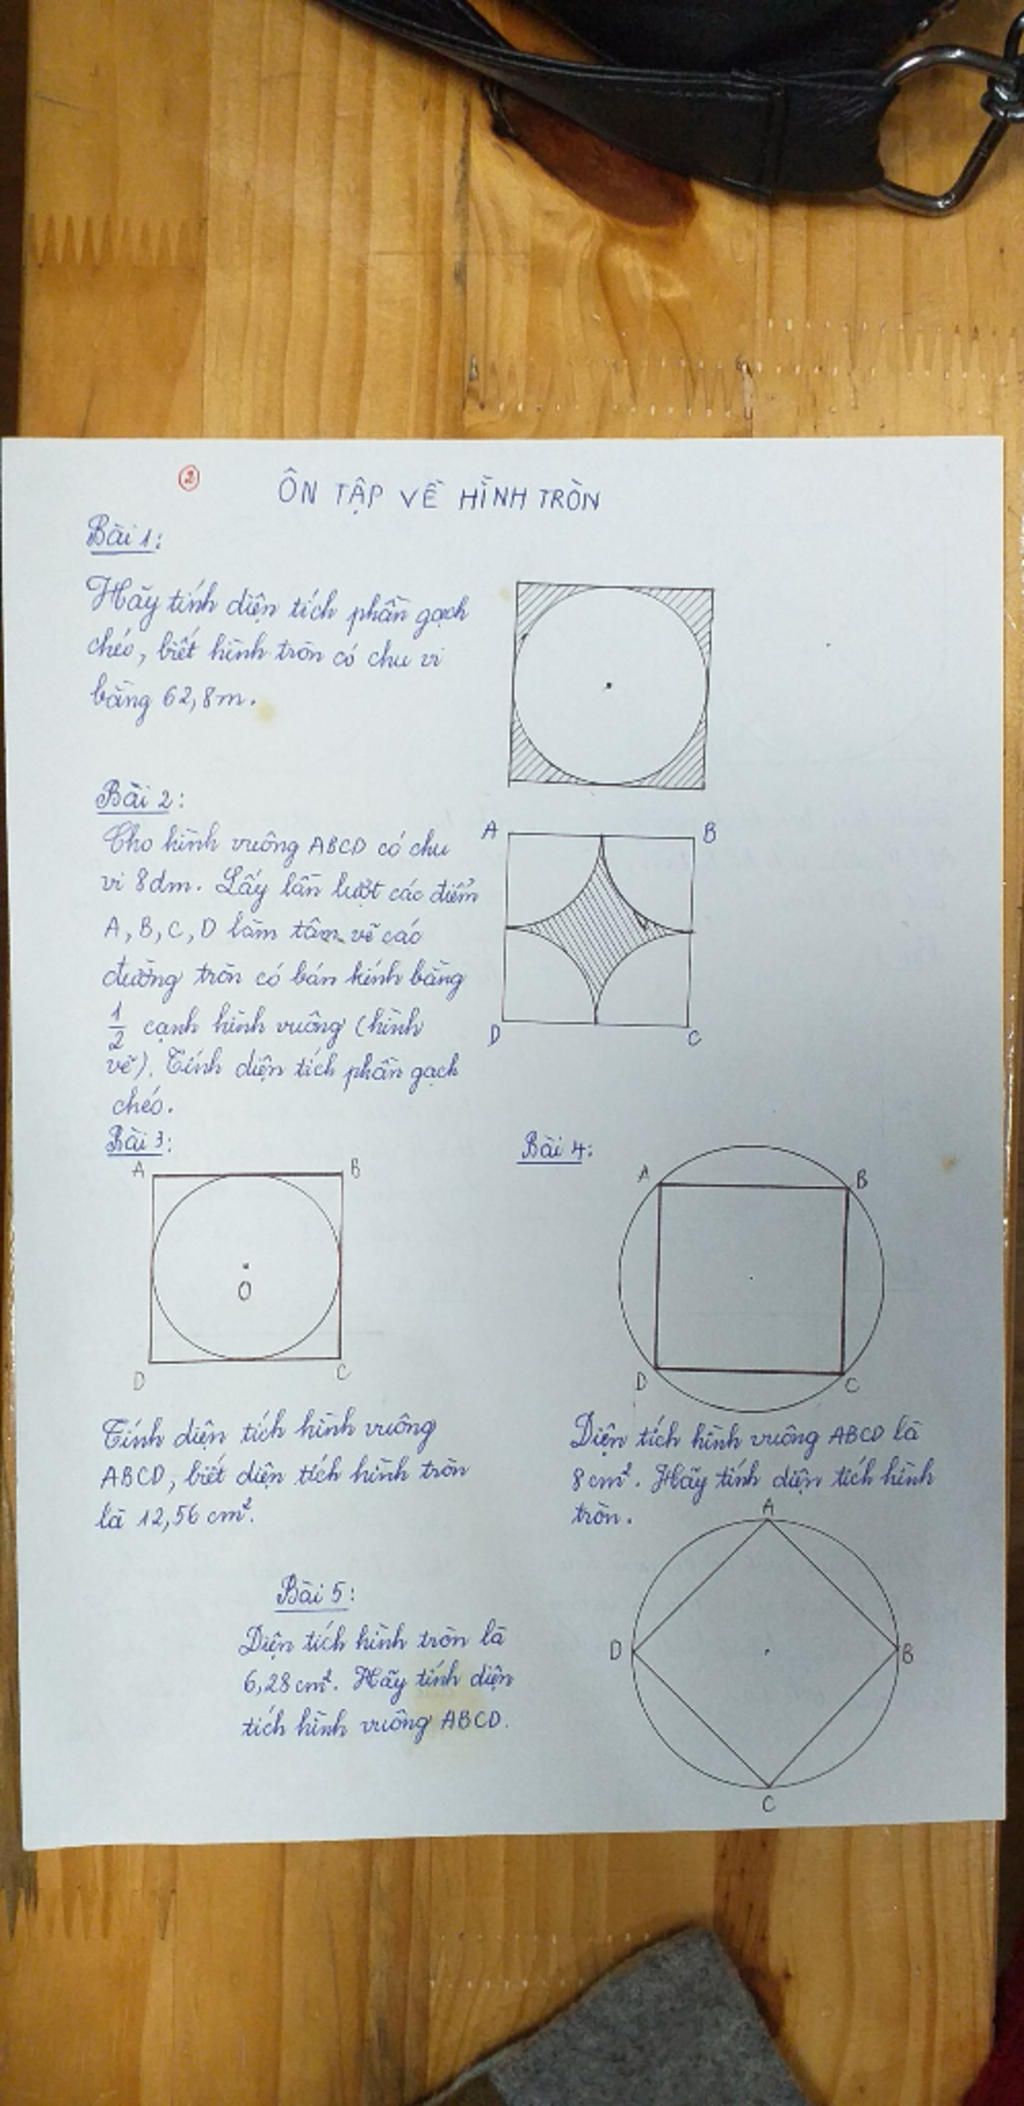 2
ÔN TẬP VỀ HÌNH TRÒN
Bài 1:
Hãy tính diện tích phần gạch
chéo, biết hình tròn có chu vi
bằng 62,8m.
Bài 2:
Cho hình vuông ABCD có chu
vi 8dm. Lấy lần lượt các điểm
A, B, C, D làm tâm vẽ các
đường tròn có bán kính bằng
1/2 cạnh hình vuông (hình
vẽ). Tính diện tích phần gạch
chéo.
A B
D C
Bài 3:
A B
O
D C
Tính diện tích hình vuông
ABCD, biết diện tích hình tròn
là 12,56 cm².
Bài 4:
A B
D C
Diện tích hình vuông ABCD là
8cm². Hãy tính diện tích hình
tròn.
Bài 5:
Diện tích hình tròn là
6,28cm². Hãy tính diện
tích hình vuông ABCD.
A
D B
C